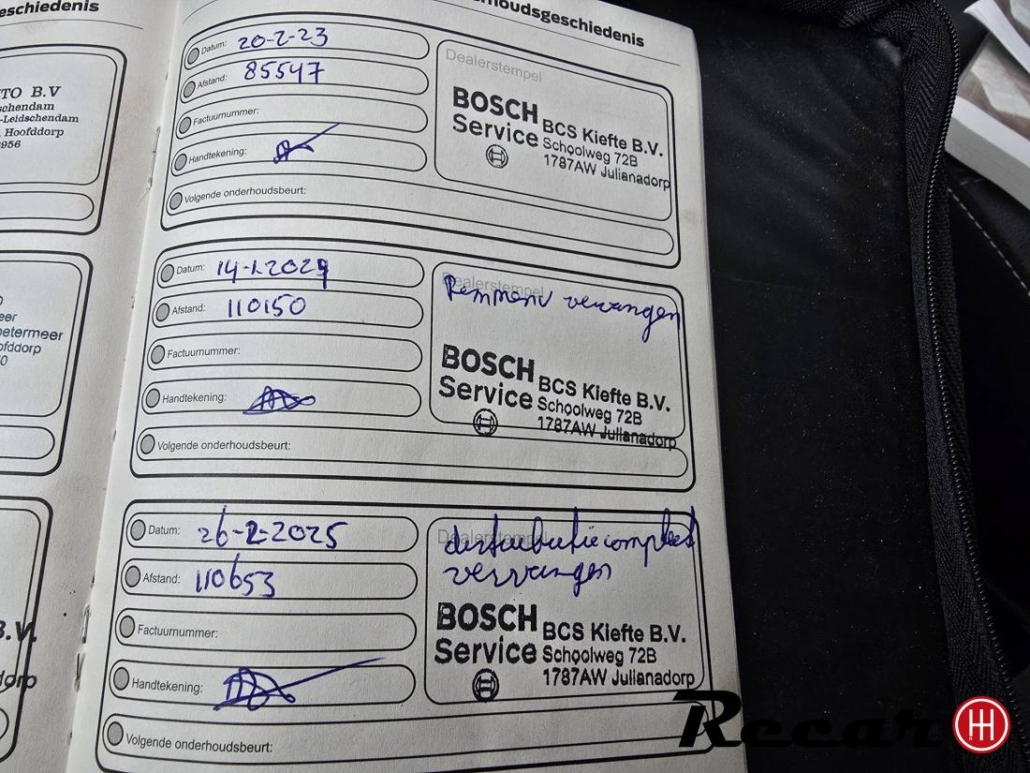 eschiedenis
TO B.V
schendam
-Leidschendam
Hoofddorp
956
eer
oetermeer
ofddorp
0
B.V.
dorp
rhoudsgeschiedenis
Datum: 20-2-23
Afstand: 85547
Factuurnummer:
Handtekening:
Volgende onderhoudsbeurt:
Dealerstempel
BOSCH
Service
BCS Kiefte B.V.
Schoolweg 72B
1787AW Julianadorp
Datum: 14-1-2024
Afstand: 110150
Factuurnummer:
Handtekening:
Volgende onderhoudsbeurt:
Dealerstempel
Remmen vervangen
BOSCH
Service
BCS Kiefte B.V.
Schoolweg 72B
1787AW Julianadorp
Datum: 26-2-2025
Afstand: 110653
Factuurnummer:
Handtekening:
Volgende onderhoudsbeurt:
Dealerstempel
distributie compleet
vervangen
BOSCH
Service
BCS Kiefte B.V.
Schoolweg 72B
1787AW Julianadorp
Recar